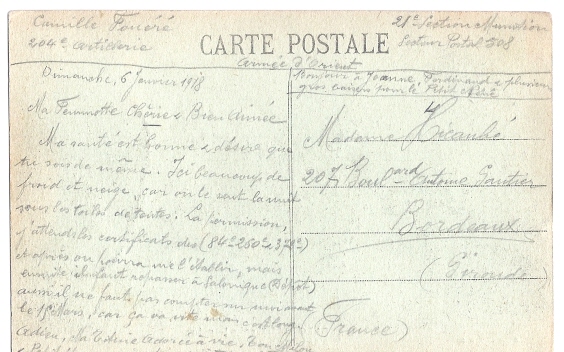 Camille Fouéré
204e Artillerie
21e Section Munition
Secteur Postal 508
CARTE POSTALE
Armée d'Orient
Dimanche, 6 Janvier 1918
Bonjour à Jeanne, Ferdinand & plusieurs
gros baisers pour le Petit
Ma Femmotte Chérie & Bien Aimée
Ma santé est bonne & désire que
tu sois de même. Ici beaucoup de
froid et neige, car on le sent la nuit
sous les toiles de tentes. La permission,
j'attends les certificats des (84e 260e & 372e)
& après on pourra me l'établir, mais
ensuite il faut repasser à Salonique
aussi il ne faut pas compter sur moi avant
le 15 Mars, car ça va
Adieu, Ma
Madame
207 Boulard Antoine Gautier
Bordeaux
(Gironde)
(France)